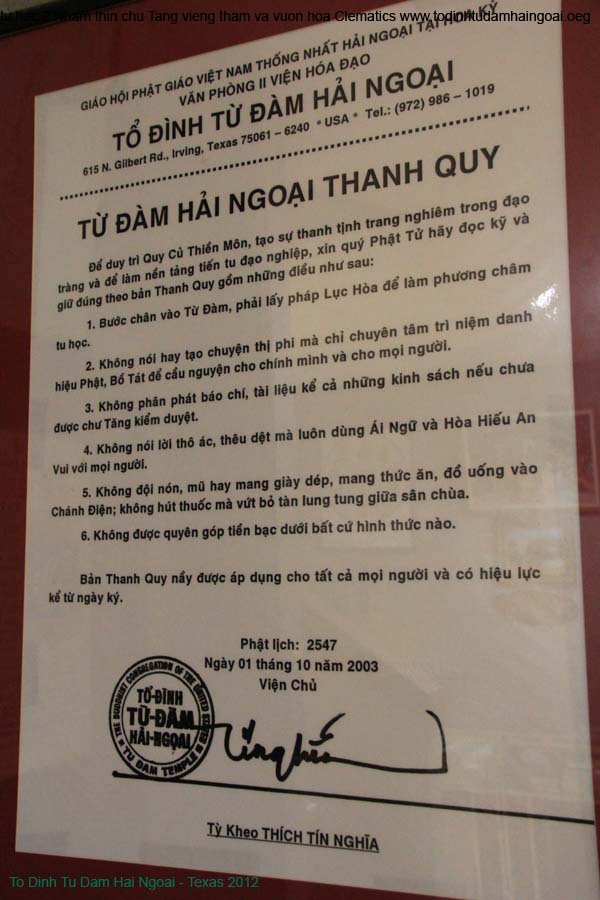 tu hoc 2 Nham thin chu Tang vieng tham va vuon hoa Clematics www.todinhtudamhaingoai.oeg
GIÁO HỘI PHẬT GIÁO VIỆT NAM THỐNG NHẤT HẢI NGOẠI TẠI HOA KỲ
VĂN PHÒNG II VIỆN HÓA ĐẠO
TỔ ĐÌNH TỪ ĐÀM HẢI NGOẠI
615 N. Gilbert Rd., Irving, Texas 75061 – 6240 * USA * Tel.: (972) 986 – 1019
TỪ ĐÀM HẢI NGOẠI THANH QUY
Để duy trì Quy Củ Thiền Môn, tạo sự thanh tịnh trang nghiêm trong đạo
tràng và để làm nền tảng tiến tu đạo nghiệp, xin quý Phật Tử hãy đọc kỹ và
giữ đúng theo bản Thanh Quy gồm những điều như sau:
1. Bước chân vào Từ Đàm, phải lấy pháp Lục Hòa để làm phương châm
tu học.
2. Không nói hay tạo chuyện thị phi mà chỉ chuyên tâm trì niệm danh
hiệu Phật, Bồ Tát để cầu nguyện cho chính mình và cho mọi người.
3. Không phân phát báo chí, tài liệu kể cả những kinh sách nếu chưa
được chư Tăng kiểm duyệt.
4. Không nói lời thô ác, thêu dệt mà luôn dùng Ái Ngữ và Hòa Hiếu An
Vui với mọi người.
5. Không đội nón, mũ hay mang giày dép, mang thức ăn, đồ uống vào
Chánh Điện; không hút thuốc mà vứt bỏ tàn lung tung giữa sân chùa.
6. Không được quyên góp tiền bạc dưới bất cứ hình thức nào.
Bản Thanh Quy nầy được áp dụng cho tất cả mọi người và có hiệu lực
kể từ ngày ký.
Phật lịch: 2547
Ngày 01 tháng 10 năm 2003
Viện Chủ
THE BUDDHIST CONGREGATION OF THE UNITED STATES
TỔ-ĐÌNH
TỪ-ĐÀM
HẢI-NGOẠI
TU DAM TEMPLE
Tỳ Kheo THÍCH TÍN NGHĨA
To Dinh Tu Dam Hai Ngoai - Texas 2012